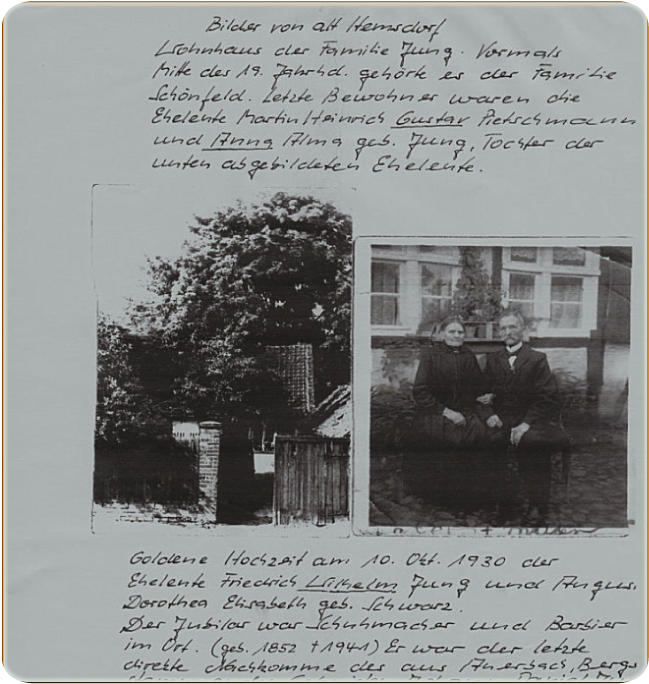 Bilder von alt Hemsdorf
Wohnhaus der Familie Jung. Vormals
Mitte des 19. Jahrhd. gehörte es der Familie
Schönfeld. Letzte Bewohner waren die
Eheleute Martin Heinrich Gustav Pietschmann
und Anna Alma geb. Jung, Tochter der
unten abgebildeten Eheleute.
Goldene Hochzeit am 10. Okt. 1930 der
Eheleute Friedrich Wilhelm Jung und August.
Dorothea Elisabeth geb. Schwarz.
Der Jubilar war Schuhmacher und Barbier
im Ort. (geb. 1852 † 1941) Er war der letzte
direkte Nachkomme des aus Auerbach, Bergs